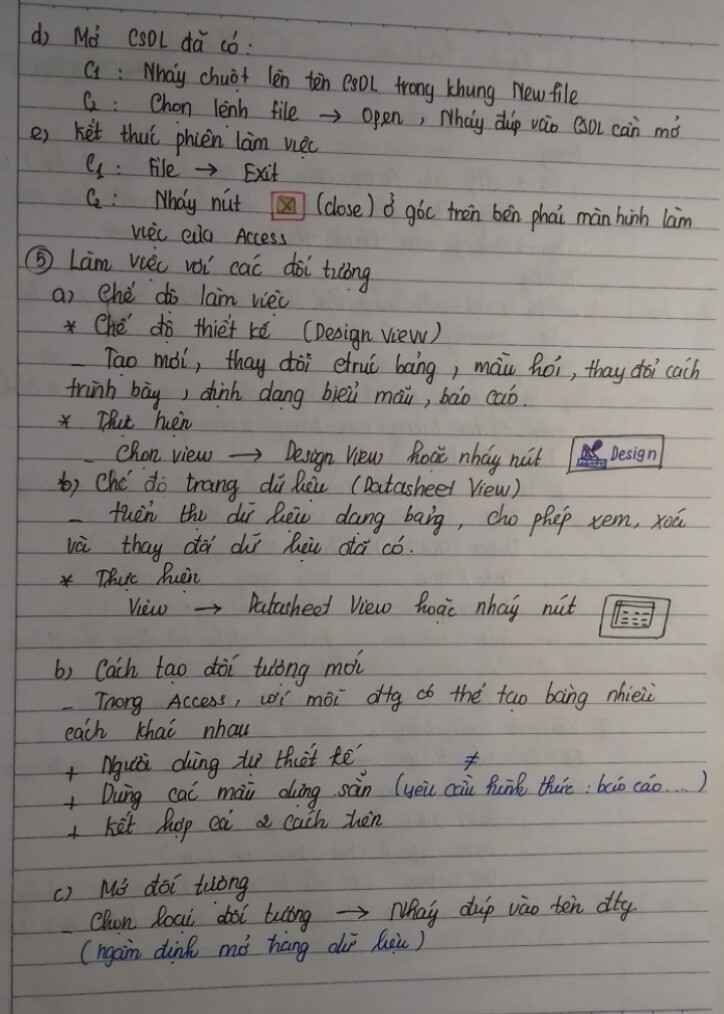 d) Mở CSDL đã có:
C1: Nháy chuột lên tên CSDL trong khung New file
C2: Chọn lệnh file → Open, Nháy đúp vào CSDL cần mở
e) Kết thúc phiên làm việc
C1: File → Exit
C2: Nháy nút (close) ở góc trên bên phải màn hình làm
việc của Access
⑤ Làm việc với các đối tượng
a) Chế độ làm việc
* Chế độ thiết kế (Design view)
- Tạo mới, thay đổi ctrúc bảng, mẫu hỏi, thay đổi cách
trình bày, định dạng biểu mẫu, báo cáo.
* Thực hiện
- Chọn view → Design View hoặc nháy nút Design
b) Chế độ trang dữ liệu (Datasheet View)
- dữ liệu dạng bảng, cho phép xem, xoá
và thay đổi dữ liệu đã có.
* Thực hiện
View → Datasheet View hoặc nháy nút
b) Cách tạo đối tượng mới
- Trong Access, với mỗi đttg có thể tạo bằng nhiều
cách khác nhau
+ Người dùng tự thiết kế
+ Dùng các mẫu dựng sẵn (yêu cầu ≠ hình thức: báo cáo...)
+ Kết hợp cả 2 cách trên
c) Mở đối tượng
- Chọn loại đối tượng → Nháy đúp vào tên đttg
(ngầm định mở trang dữ liệu)